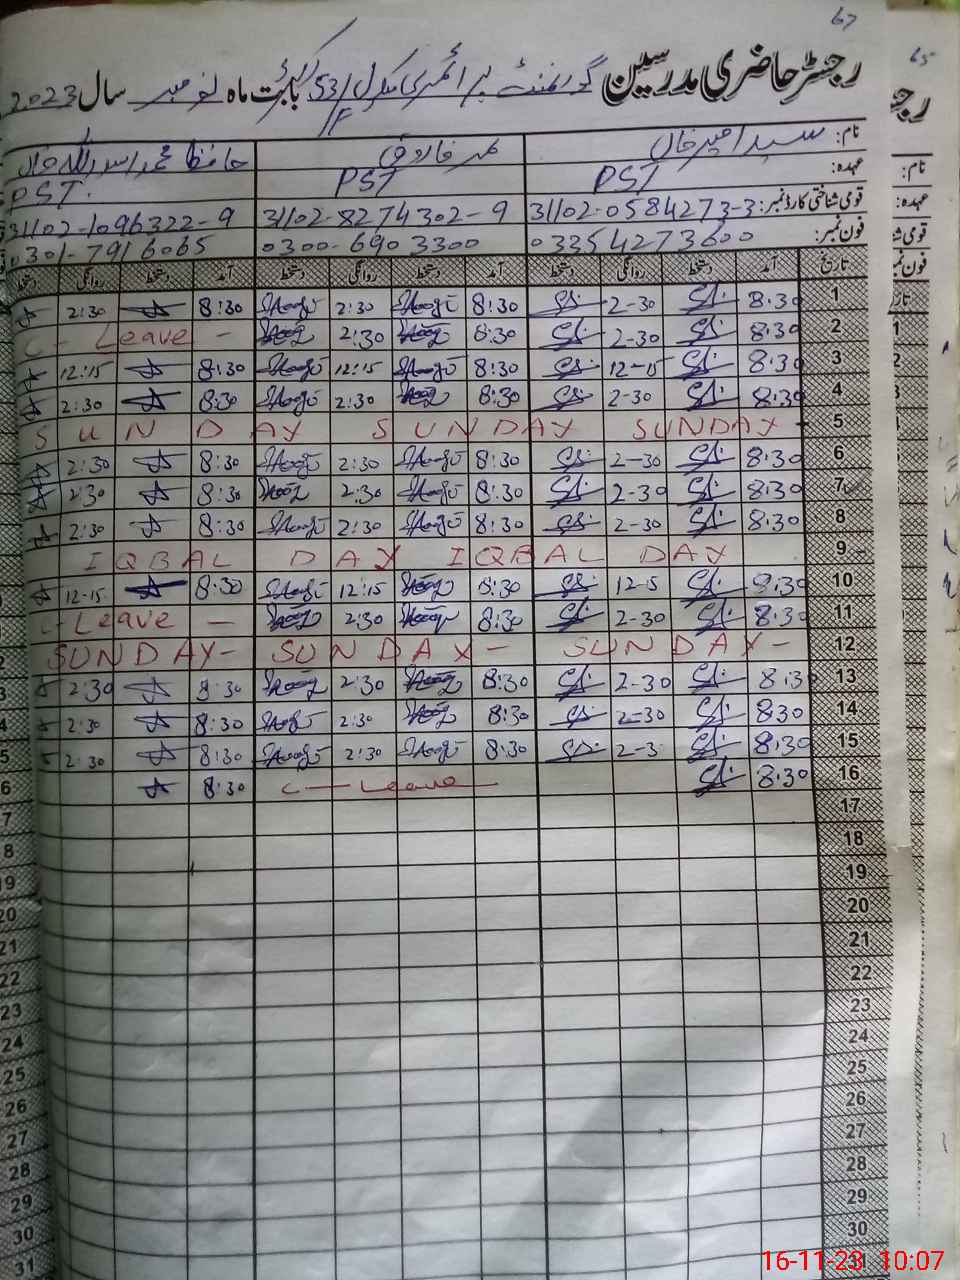 67
رجسٹر حاضری مدرسین گورنمنٹ پرائمری سکول 53/ بابت ماہ نومبر سال 2023
1F
نام: سید امیر خان عمر فاروق حافظ محمد اسد اللہ خان
عہدہ: PST PST PST.
قومی شناختی کارڈ نمبر: 31102-0584273-3 31102-8274302-9 31102-1096322-9
فون نمبر: 03354273600 0300-6903300 0301-7916065
تاریخ آمد دستخط روانگی دستخط آمد دستخط روانگی دستخط آمد دستخط روانگی دستخط
1 8:30 2-30 8:30 2:30 8:30 2:30
2 8:30 2-30 8:30 2:30 C - Leave -
3 8:30 12-15 8:30 12:15 8:30 12:15
4 8:30 2-30 8:30 2:30 8:30 2:30
5 SUNDAY SUNDAY SUNDAY
6 8:30 2-30 8:30 2:30 8:30 2:30
7 8:30 2-30 8:30 2:30 8:30 2:30
8 8:30 2-30 8:30 2:30 8:30 2:30
9 IQBAL DAY IQBAL DAY
10 8:30 12-15 8:30 12:15 8:30 12-15
11 8:30 2-30 8:30 2:30 Leave -
12 SUNDAY- SUNDAY- SUNDAY-
13 8:30 2-30 8:30 2:30 8:30 2:30
14 830 2-30 8:30 2:30 8:30 2:30
15 8:30 2-3 8:30 2:30 8:30 2:30
16 8:30 C - Leave - 8:30
17
18
19
20
21
22
23
24
25
26
27
28
29
30
31
16-11-23 10:07